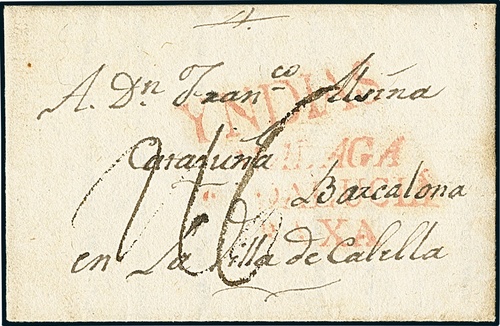 A. Dn Franco Alsina
YNDIAS
Cataluña
MALAGA
Barcalona
ANDALUCIA
BAXA
en La Villa de Calella
16